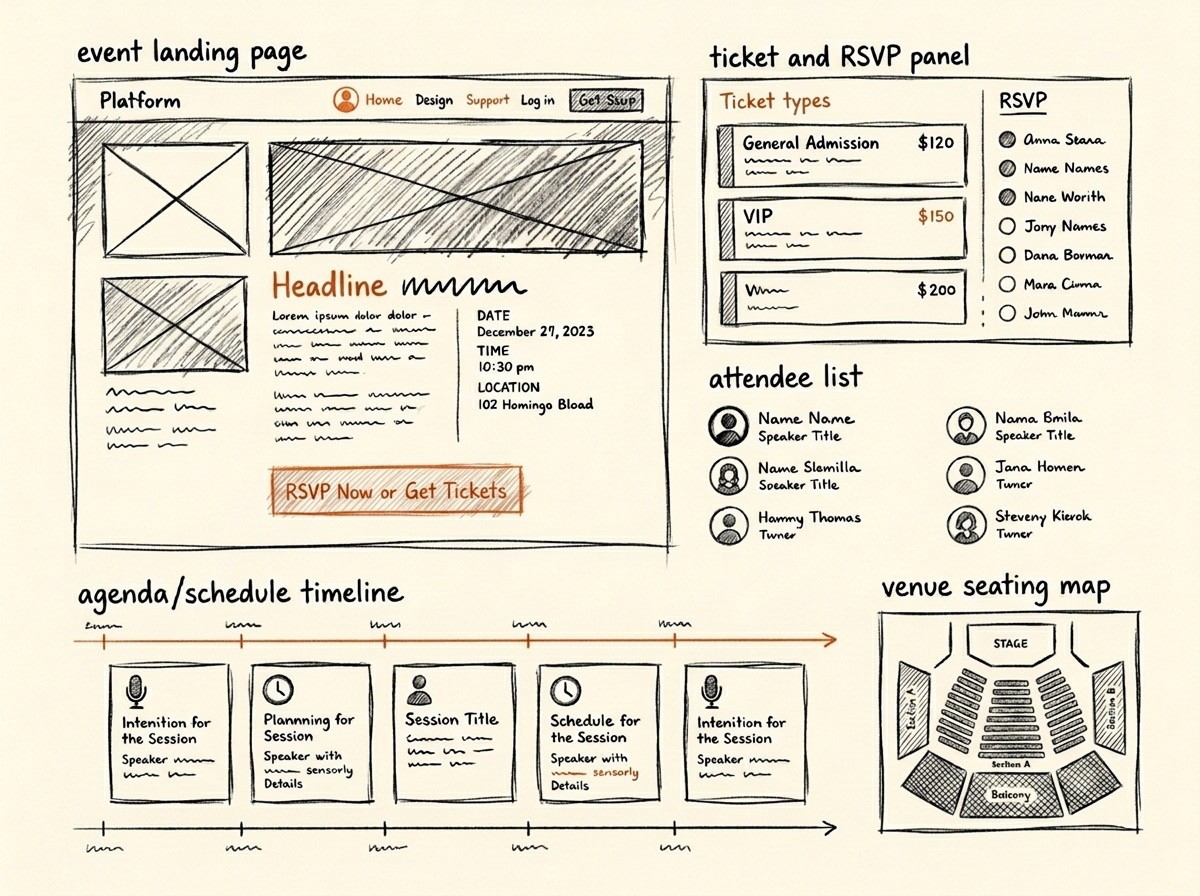 event landing page
Platform
Home Design Support Log in Get Ssup
Headline
Lorem ipsum dolor dolor
DATE
December 27, 2023
TIME
10:30 pm
LOCATION
102 Homingo Bload
RSVP Now or Get Tickets
ticket and RSVP panel
Ticket types
General Admission $120
VIP $150
$200
RSVP
Anna Seara
Name Names
Nane Worith
Jony Names
Dana Borman
Mara
John
attendee list
Name Name
Speaker Title
Name Slemilla
Speaker Title
Hamny Thomas
Twner
Nama Bmila
Speaker Title
Jana Homen
Twner
Steveny Kierok
Twner
agenda/schedule timeline
Intenition for
the Session
Speaker
Plannning for
Session
Speaker with
sensorly
Details
Session Title
Schedule for
the Session
Speaker with
sensorly
Details
Intenition for
the Session
Speaker
venue seating map
STAGE
Section A
Section B
Section A
Balcony